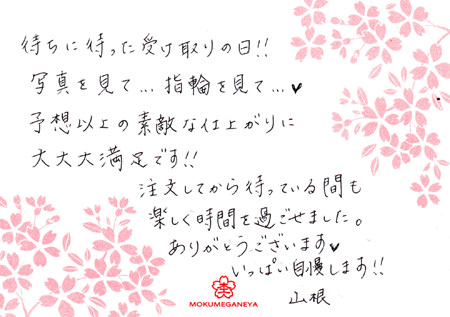 待ちに待った受け取りの日!!
写真を見て...指輪を見て...♥
予想以上の素敵な仕上がりに
大大大満足です!!
注文してから待っている間も
楽しく時間を過ごせました。
ありがとうございます♥
いっぱい自慢します!!
山根
MOKUMEGANEYA